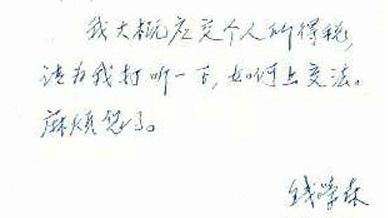 我大概应交个人所得税,
请为我打听一下,如何上交法。
麻烦您了。
钱学森